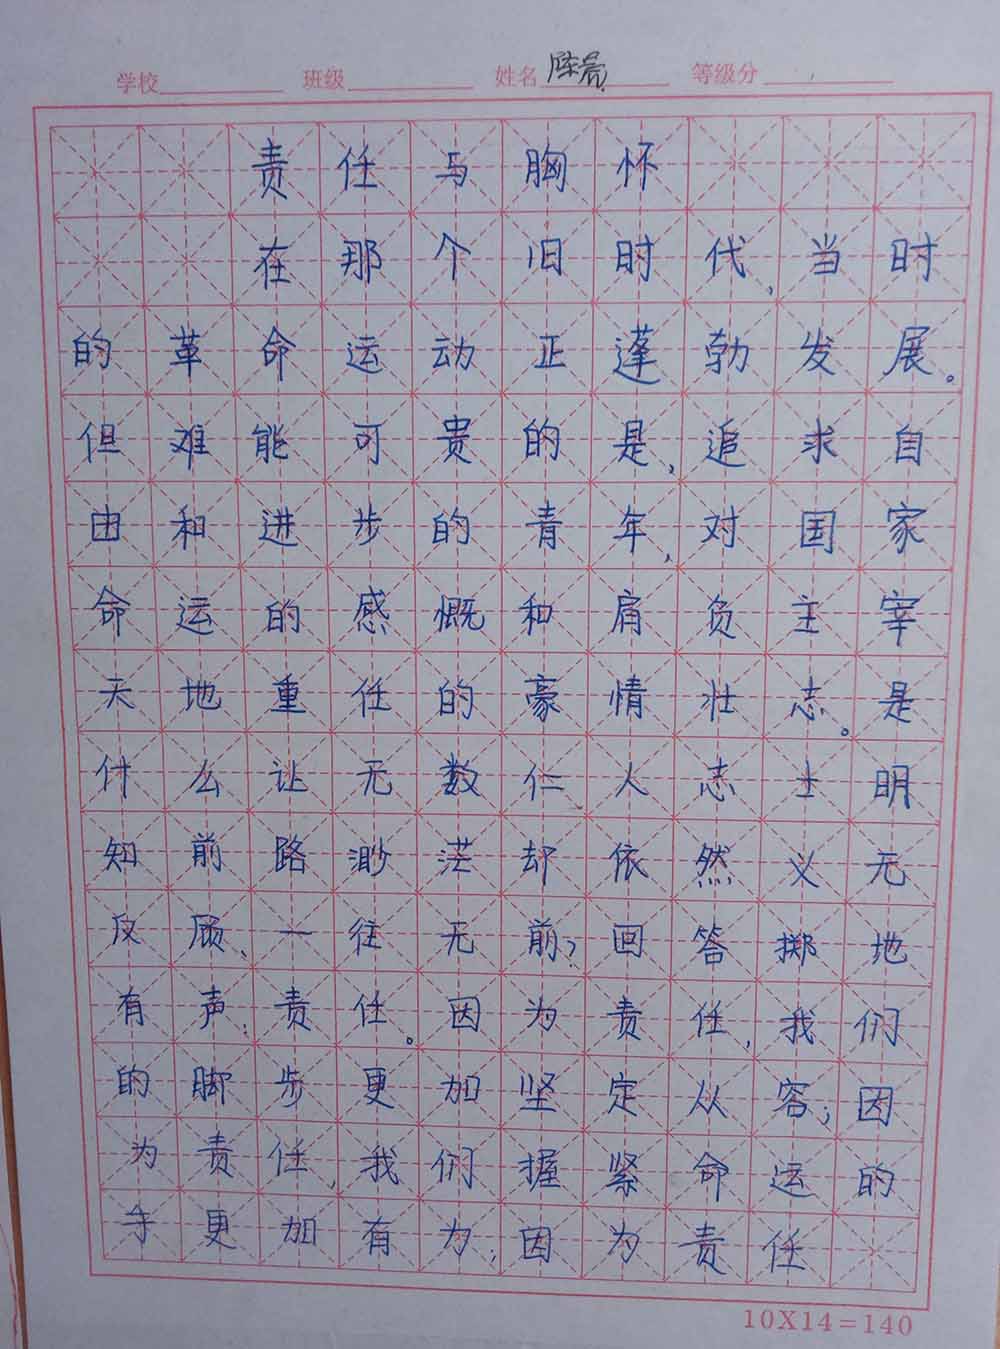 学校 班级 姓名 陈亮 等级分
责任与胸怀
在那个旧时代,当时
的革命运动正蓬勃发展。
但难能可贵的是,追求自
由和进步的青年,对国家
命运的感慨和肩负主宰
天地重任的豪情壮志。是
什么让无数仁人志士明
知前路渺茫却依然义无
反顾、一往无前?回答掷地
有声:责任。因为责任,我们
的脚步更加坚定从容;因
为责任,我们握紧命运的
手更加有力;因为责任
10X14=140